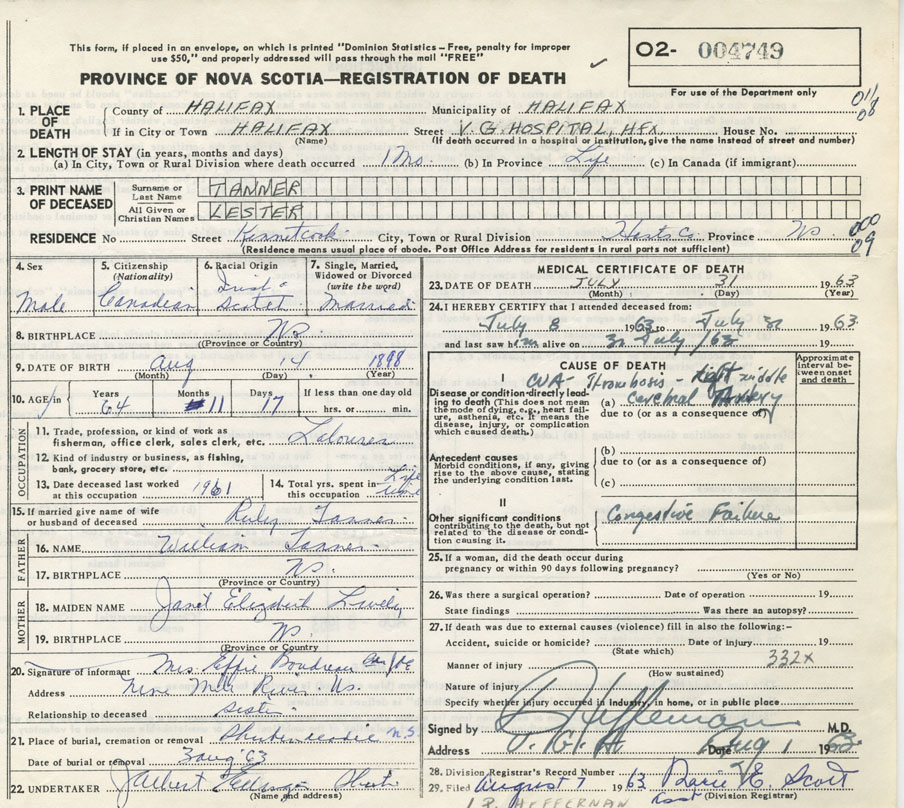 This form, if placed in an envelope, on which is printed "Dominion Statistics—Free, penalty for improper
use $50," and properly addressed will pass through the mail "FREE"
O2- 004749
PROVINCE OF NOVA SCOTIA—REGISTRATION OF DEATH
For use of the Department only
1. PLACE OF DEATH
County of HALIFAX Municipality of HALIFAX
If in City or Town HALIFAX Street V.G. HOSPITAL, HFX. House No.
(Name) (If death occurred in a hospital or institution, give the name instead of street and number)
2. LENGTH OF STAY (in years, months and days)
(a) In City, Town or Rural Division where death occurred 1 Mo. (b) In Province Life (c) In Canada (if immigrant)
3. PRINT NAME OF DECEASED
Surname or Last Name TANNER
All Given or Christian Names LESTER
RESIDENCE No Street Kennetcook City, Town or Rural Division Hants Co. Province NS. 
(Residence means usual place of abode. Post Office Address for residents in rural parts not sufficient)
000
09
4. Sex
Male
5. Citizenship
(Nationality)
Canadian
6. Racial Origin
7. Single, Married, Widowed or Divorced
(write the word)
Married
8. BIRTHPLACE NS
(Province or Country)
9. DATE OF BIRTH Aug 14 1898
(Month) (Day) (Year)
10. AGE in Years 64 Months 11 Days 17 If less than one day old
hrs. or min.
OCCUPATION
11. Trade, profession, or kind of work as
fisherman, office clerk, sales clerk, etc. Labourer
12. Kind of industry or business, as fishing,
bank, grocery store, etc.
13. Date deceased last worked
at this occupation 1961
14. Total yrs. spent in
this occupation Life time
15. If married give name of wife
or husband of deceased Tanner
FATHER
16. NAME William Tanner
17. BIRTHPLACE NS.
(Province or Country)
MOTHER
18. MAIDEN NAME Janet Elizabeth Lively
19. BIRTHPLACE NS
(Province or Country)
20. Signature of informant Mrs. Effie Boudreau
Address Nine Mile River. NS.
Relationship to deceased Sister
21. Place of burial, cremation or removal Shubenacadie N.S.
Date of burial or removal 3 Aug '63
22. UNDERTAKER
(Name and address)
MEDICAL CERTIFICATE OF DEATH
23. DATE OF DEATH JULY 31 1963
(Month) (Day) (Year)
24. I HEREBY CERTIFY that I attended deceased from:
July 8 1963 to July 31 1963
and last saw him alive on 31 July /63 19
CAUSE OF DEATH
Approximate interval between onset and death
I
Disease or condition directly leading to death (This does not mean
the mode of dying, e.g., heart failure, asthenia, etc. It means the
disease, injury, or complication
which caused death.)
CVA - Thrombosis - Right middle
(a) Cerebral Artery
due to (or as a consequence of)
Antecedent causes
Morbid conditions, if any, giving
rise to the above cause, stating
the underlying condition last.
(b)
due to (or as a consequence of)
(c)
II
Other significant conditions
contributing to the death, but not
related to the disease or condition causing it.
Congestive Failure
25. If a woman, did the death occur during
pregnancy or within 90 days following pregnancy?
(Yes or No)
26. Was there a surgical operation? Date of operation 19
State findings Was there an autopsy?
27. If death was due to external causes (violence) fill in also the following:-
Accident, suicide or homicide? Date of injury 19
(State which)
Manner of injury 332X
(How sustained)
Nature of injury
Specify whether injury occurred in industry, in home, or in public place
Signed by Heffernan M.D.
Address V.G.H. Date Aug 1 1963
28. Division Registrar's Record Number
29. Filed August 7 1963 Marie E. Scott
(Division Registrar)
HEFFERNAN